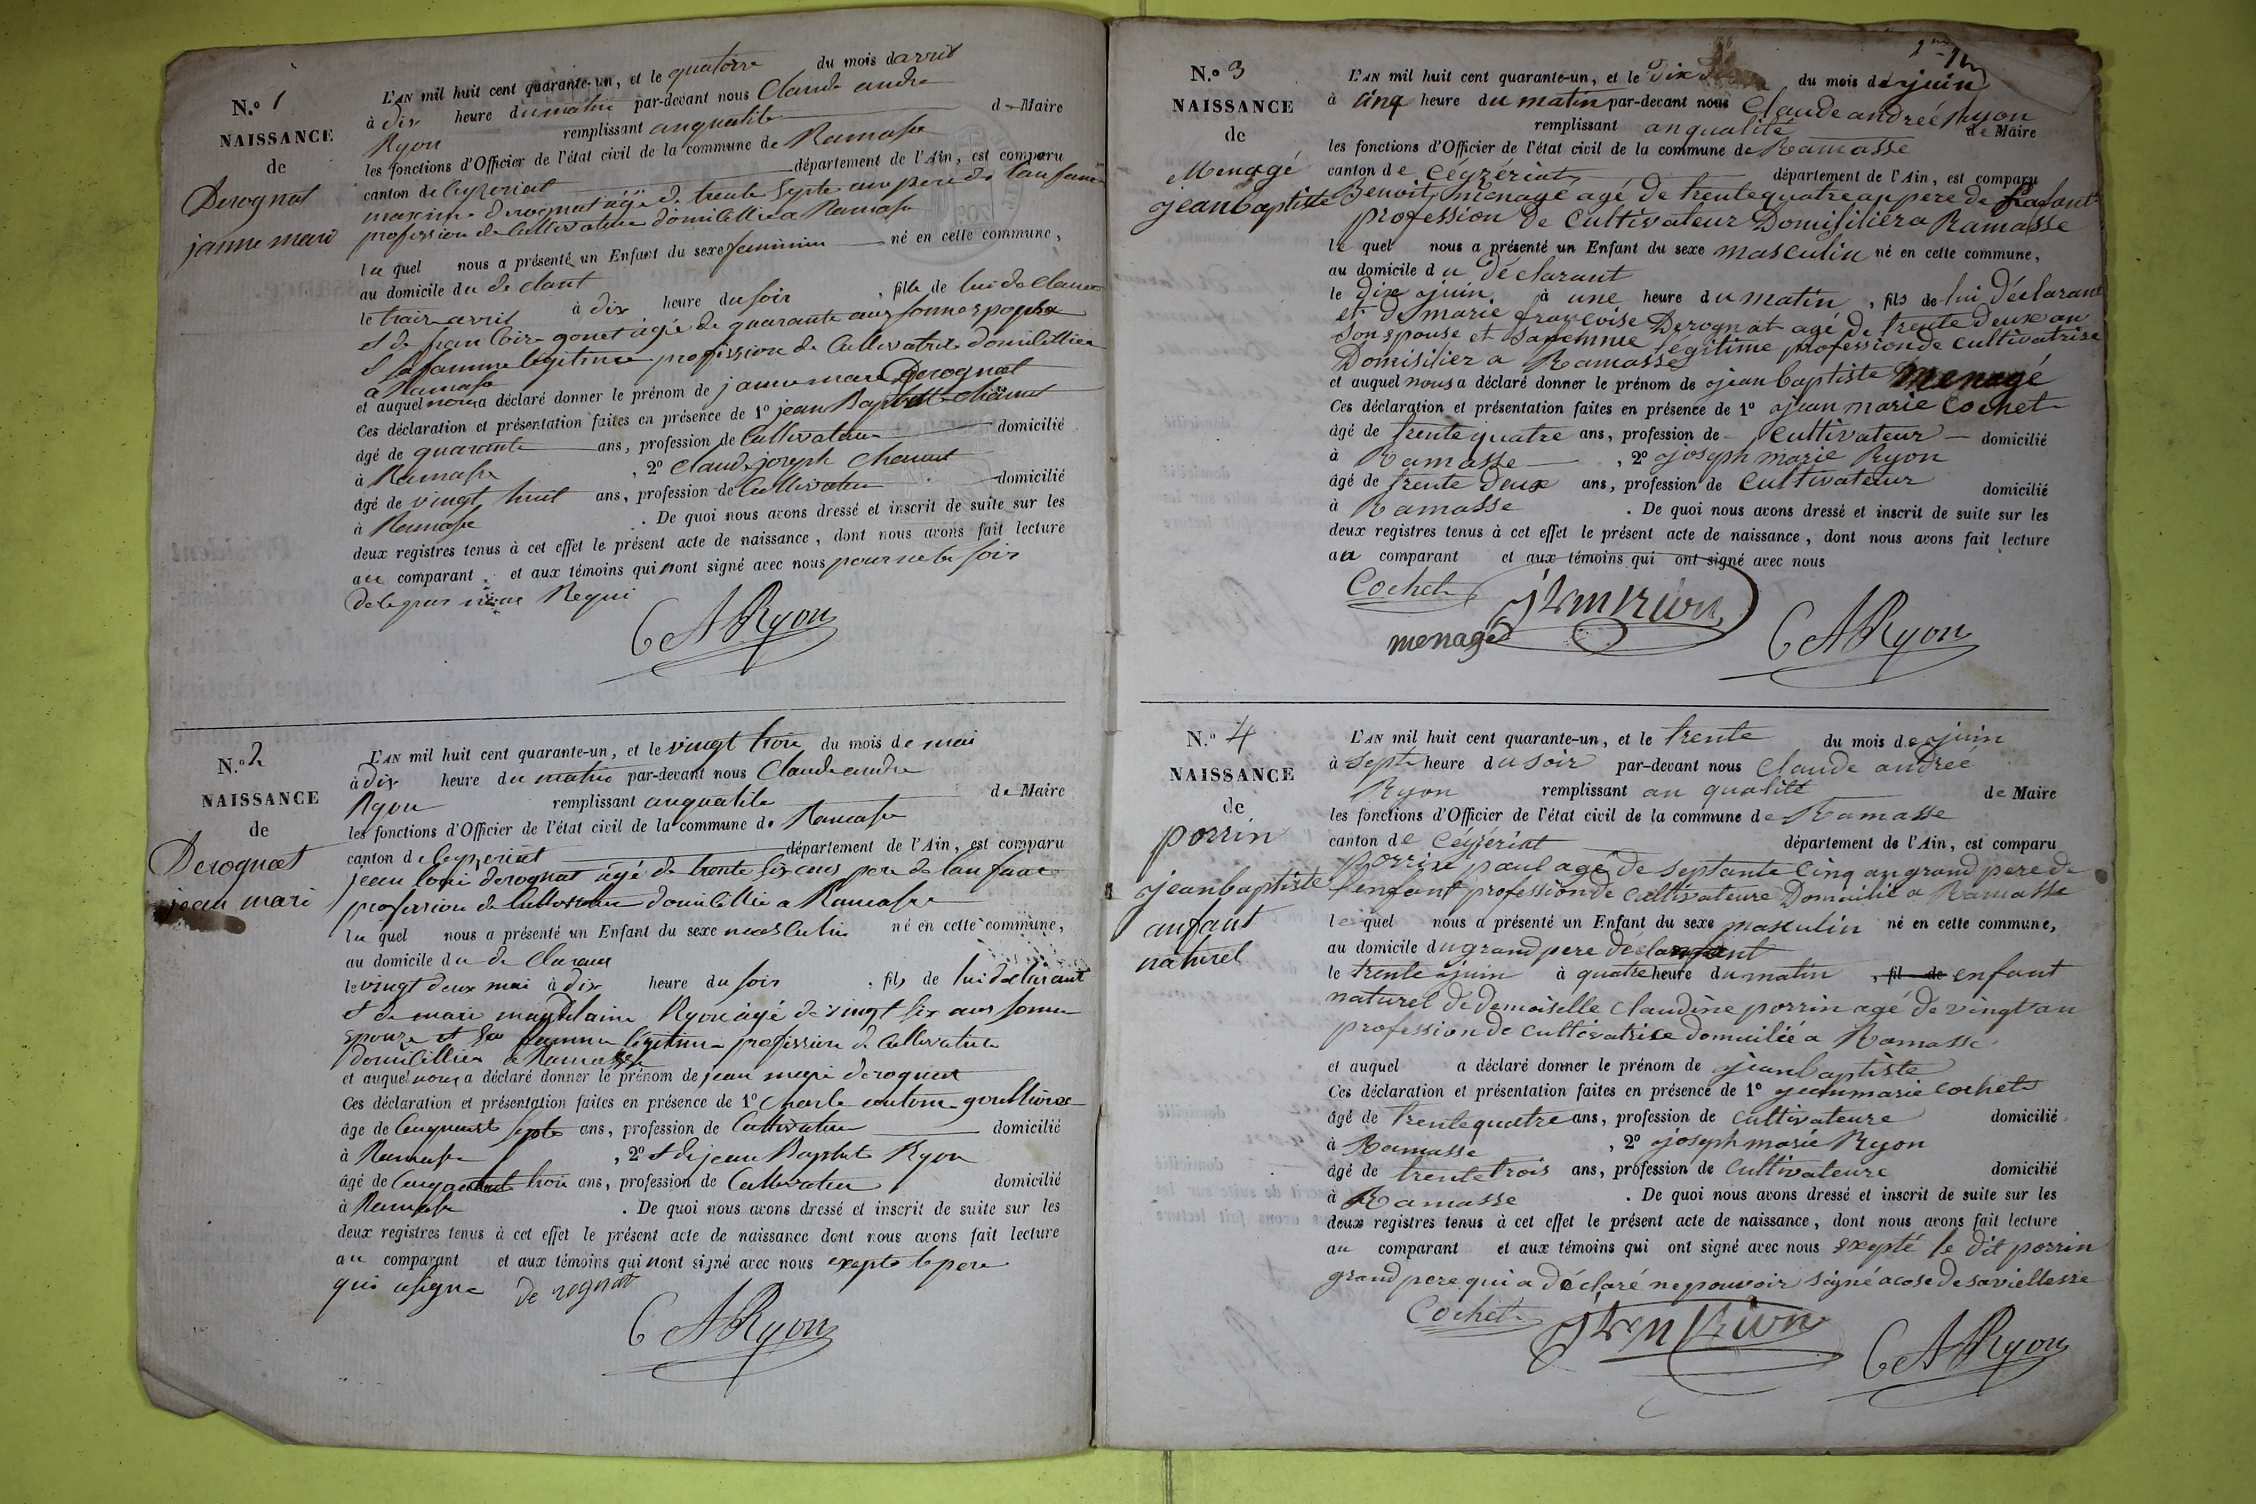 N.o 1
NAISSANCE
de
Derognat
janne mari
L'AN mil huit cent quarante-un, et le quatorze du mois d'avril
à dix heure du matin par-devant nous Claude andre
Ryon remplissant anqualite de Maire
les fonctions d'Officier de l'état civil de la commune de Ramasse
canton de Ceyzeriat département de l'Ain, est comparu
maxime derognat agé de trente septe ans pere de lanfant
profession de Cultivateur domicillie a Ramasse
le quel nous a présenté un Enfant du sexe feminin né en cette commune,
au domicile du de clant
le traize avril à dix heure du soir, fille de lui de Claran
et de gonet âgé de quarante ans sonnes pouse
et sa famme legitime profission de Cultivatrice domicilliee
a Ramase
et auquel nous a déclaré donner le prénom de janne mare Derognat
Ces déclaration et présentation faites en présence de 1o jean Baptiste chanut
âgé de quarante ans, profession de Cultivateur domicilié
à Ramasse, 2o Claude joseph Chanut
âgé de vingt huit ans, profession de Cultivateur domicilié
à Ramasse. De quoi nous avons dressé et inscrit de suite sur les
deux registres tenus à cet effet le présent acte de naissance, dont nous avons fait lecture
au comparant et aux témoins qui nont signé avec nous pour ne le soir
de le pas Requi
C A Ryon
N.o 2
NAISSANCE
de
Derognat
jean mari
L'AN mil huit cent quarante-un, et le vingt trois du mois de mai
à dix heure du matin par-devant nous Claude andre
Ryon remplissant anqualite de Maire
les fonctions d'Officier de l'état civil de la commune de Ramasse
canton de Ceyzeriat département de l'Ain, est comparu
jean loui derognat agé de trente six ans pere de lanfant
profession de Cultivateur domicillie a Ramasse
le quel nous a présenté un Enfant du sexe masculin né en cette commune,
au domicile du de Claran
le vingt deux mai à dix heure du soir, fils de lui declarant
et de mari magdelaine Ryon âgé de vingt six ans sonne
epouze et sa famme legitime profession de Cultivatrice
domicilliee a Ramasse
et auquel nous a déclaré donner le prénom de jean mari derognat
Ces déclaration et présentation faites en présence de 1o Charle antoine
âge de Cinquante septe ans, profession de Cultivateur domicilié
à Ramasse, 2o et de jean Baptiste Ryon
âgé de Cinquante trois ans, profession de Cultivateur domicilié
à Ramasse. De quoi nous avons dressé et inscrit de suite sur les
deux registres tenus à cet effet le présent acte de naissance dont nous avons fait lecture
au comparant et aux témoins qui nont signé avec nous exepte le pere
qui asigne de rognat
C A Ryon
N.o 3
NAISSANCE
de
Menagé
jeanbaptiste
L'AN mil huit cent quarante-un, et le dix du mois de juin
à cinq heure du matin par-devant nous Claude andreé Ryon
remplissant anqualité de Maire
les fonctions d'Officier de l'état civil de la commune de Ramasse
canton de Céyzériat département de l'Ain, est comparu
Benoit menagé agé de trentequatre an pere de
profession de Cultivateur Domisiliér a Ramasse
le quel nous a présenté un Enfant du sexe masculin né en cette commune,
au domicile du Déclarant
le dix juin, à une heure du matin, fils de lui Déclarant
et de marie françoise Derognat agé de trente deux an
son epouse et safemme légitime profession de cultivatrise
Domisiliér a Ramasse
et auquel nous a déclaré donner le prénom de jean baptiste Menagé
Ces déclaration et présentation faites en présence de 1o jean marie Cochet
âgé de trente quatre ans, profession de cultivateur domicilié
à Ramasse, 2o joseph marie Ryon
âgé de trente deux ans, profession de cultivateur domicilié
à Ramasse. De quoi nous avons dressé et inscrit de suite sur les
deux registres tenus à cet effet le présent acte de naissance, dont nous avons fait lecture
au comparant et aux témoins qui ont signé avec nous
Cochet
menagé
C A Ryon
N.o 4
NAISSANCE
de
porrin
jeanbaptiste
anfant
naturel
L'AN mil huit cent quarante-un, et le trente du mois de juin
à septe heure du soir par-devant nous Claude andreé
Ryon remplissant an qualité de Maire
les fonctions d'Officier de l'état civil de la commune de Ramasse
canton de Céyzériat département de l'Ain, est comparu
porrin paul agé de septante cinq an grand pere de
l'enfant profession de cultivateure Domicilié a Ramasse
le quel nous a présenté un Enfant du sexe masculin né en cette commune,
au domicile du grand pere
le trente juin à quatre heure du matin, fil de enfant
naturel de demoiselle claudine porrin agé de vingt an
profession de cultivatrice domiciliée a Ramasse
et auquel a déclaré donner le prénom de jeanbaptiste
Ces déclaration et présentation faites en présence de 1o jeanmarie Cochet
âgé de trentequatre ans, profession de cultivateure domicilié
à Ramasse, 2o joseph marie Ryon
âgé de trentetrois ans, profession de cultivateure domicilié
à Ramasse. De quoi nous avons dressé et inscrit de suite sur les
deux registres tenus à cet effet le présent acte de naissance, dont nous avons fait lecture
au comparant et aux témoins qui ont signé avec nous exepté le dit porrin
grand pere qui a déclaré ne pouvoir signé acose de saviellesse
Cochet
C A Ryon